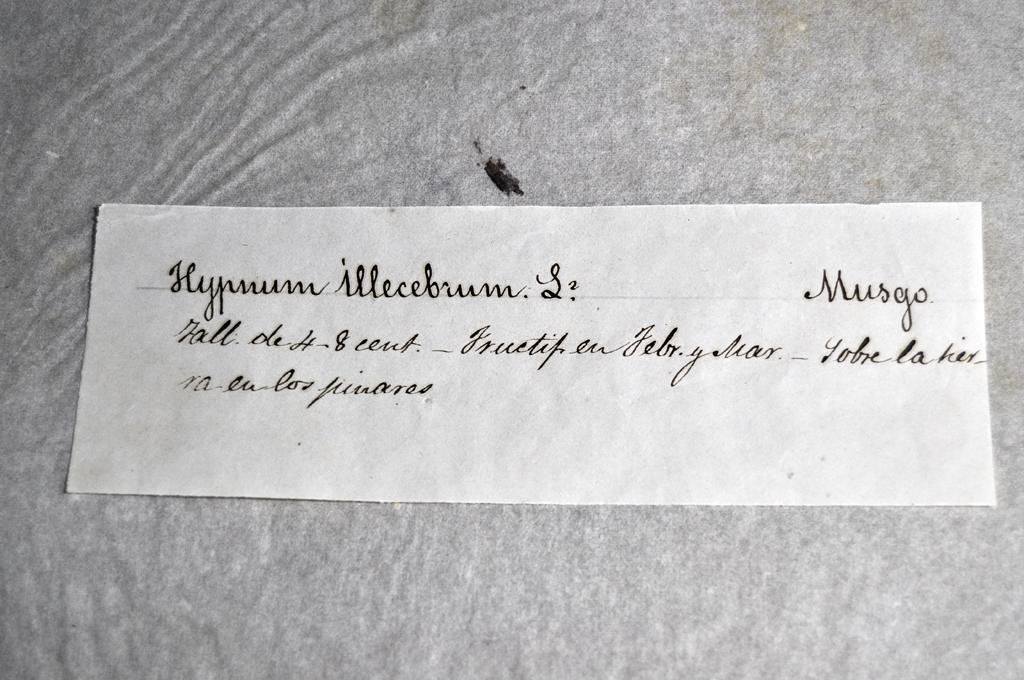 Hypnum illecebrum. L? Musgo.
Tall. de 4-8 cent. - Fructif en Febr. y Mar. - Sobre la tier-
ra en los pinares